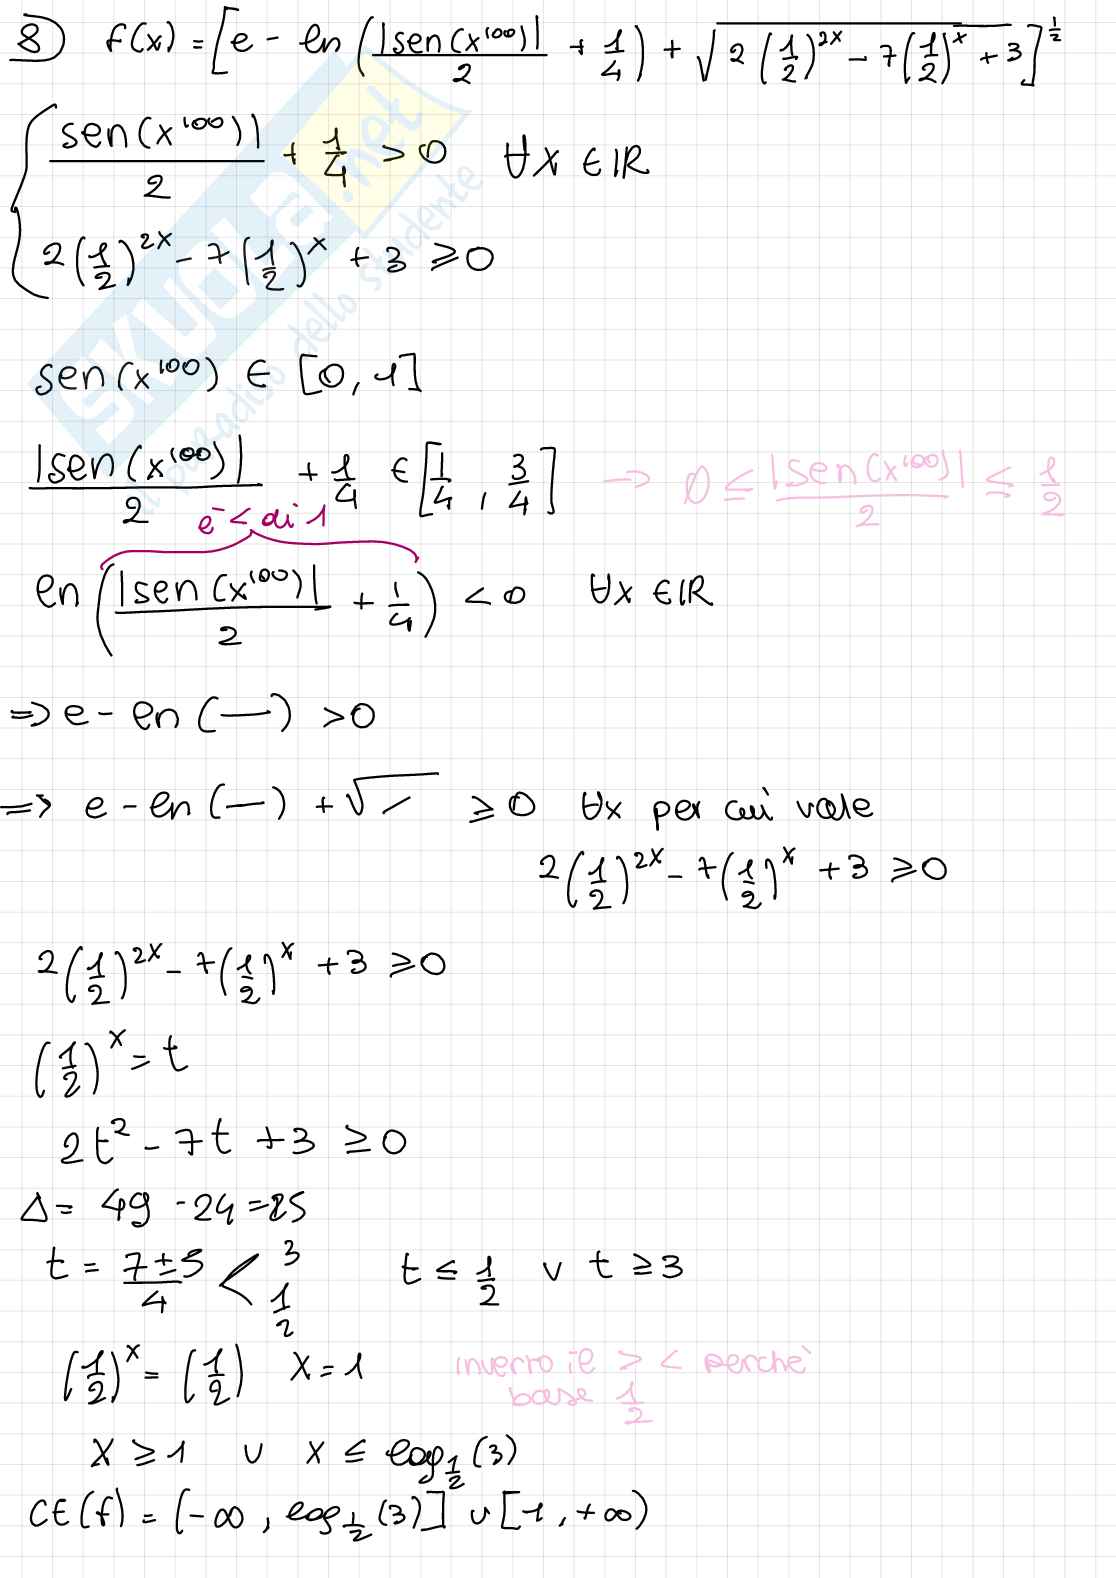 8) f(x) = [e - ln (|sen(x¹⁰⁰)|/2 + 1/4) + √(2(1/2)^2x - 7(1/2)^x + 3)]^1/2
{ sen(x¹⁰⁰)|/2 + 1/4 > 0 ∀x ∈ IR
2(1/2)^2x - 7(1/2)^x + 3 ≥ 0
sen(x¹⁰⁰) ∈ [0, 1]
|sen(x¹⁰⁰)|/2 + 1/4 ∈ [1/4, 3/4] → 0 ≤ |sen(x¹⁰⁰)|/2 ≤ 1/2
è < di 1
ln (|sen(x¹⁰⁰)|/2 + 1/4) < 0 ∀x ∈ IR
⇒ e - ln (—) > 0
⇒ e - ln (—) + √— ≥ 0 ∀x per cui vale
2(1/2)^2x - 7(1/2)^x + 3 ≥ 0
2(1/2)^2x - 7(1/2)^x + 3 ≥ 0
(1/2)^x = t
2t² - 7t + 3 ≥ 0
Δ = 49 - 24 = 25
t = (7 ± 5)/4 < 3 1/2 t ≤ 1/2 ∨ t ≥ 3
(1/2)^x = (1/2) x = 1 inverto il > < perchè
base 1/2
x ≥ 1 ∪ x ≤ log_1/2 (3)
CE(f) = (-∞, log_1/2 (3)] ∪ [1, +∞)
SKUOLA.net
il paradiso dello studente